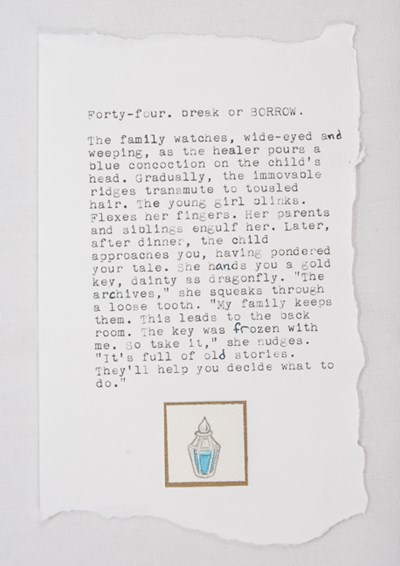 Forty-four. break or BORROW.
The family watches, wide-eyed and
weeping, as the healer pours a
blue concoction on the child's
head. Gradually, the immovable
ridges transmute to tousled
hair. The young girl blinks.
Flexes her fingers. Her parents
and siblings engulf her. Later,
after dinner, the child
approaches you, having pondered
your tale. She hands you a gold
key, dainty as dragonfly. "The
archives," she squeaks through
a loose tooth. "My family keeps
them. This leads to the back
room. The key was frozen with
me. So take it," she nudges.
"It's full of old stories.
They'll help you decide what to
do."